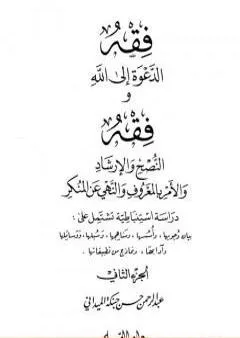 فِقْهُ
الدَّعْوَةِ إِلَى اللَّهِ
و
فِقْهُ
النُّصْحِ وَالْإِرْشَادِ
وَالْأَمْرِ بِالْمَعْرُوفِ وَالنَّهْيِ عَنِ الْمُنْكَرِ
دِرَاسَة اسْتِنْبَاطِيَّة تَشْتَمِل عَلَى :
بيان وجوبها، وأسسها، ومناهجها، وسبلها، ووسائلها
وآدابها، ونماذج من تطبيقاتها .
الجزء الثاني
عبد الرحمن حسن حبنكة الميداني